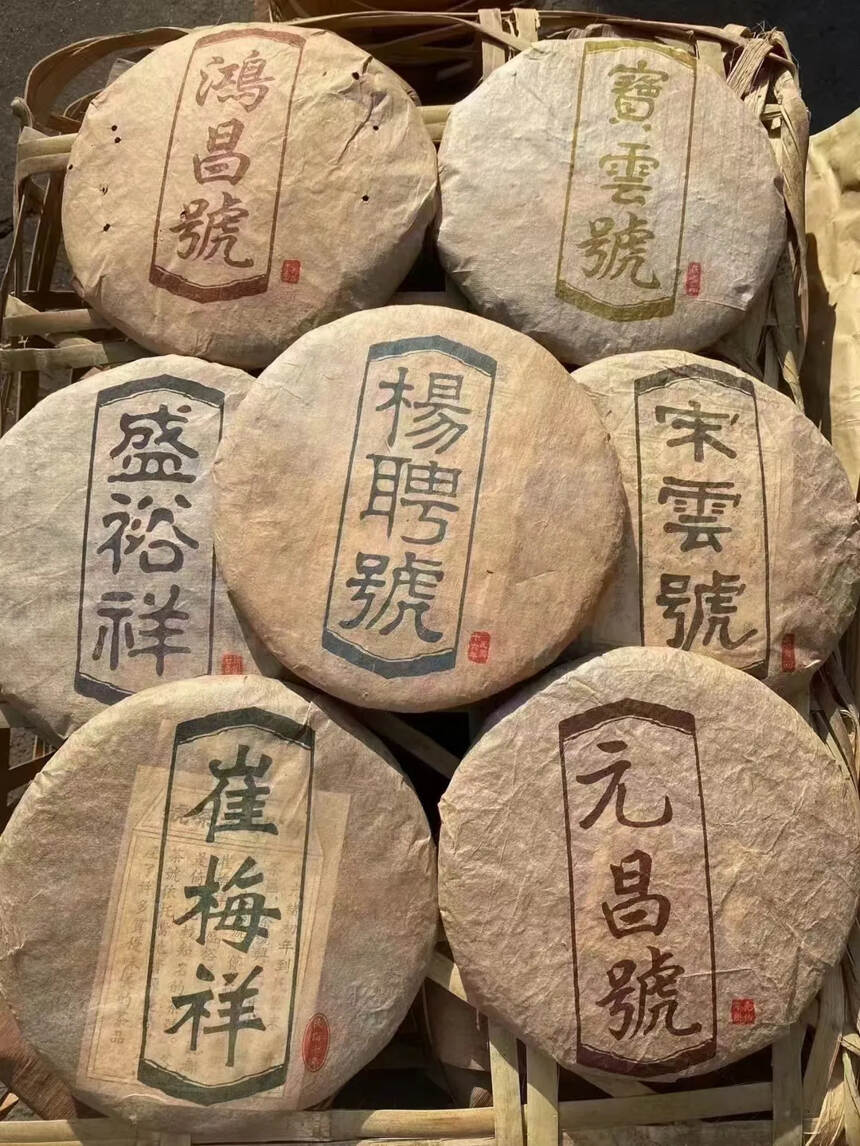 鴻昌號
寶雲號
盛裕祥
楊聘號
宋雲號
崔梅祥
元昌號